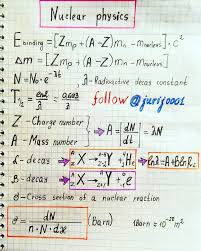 Nuclear physics
E binding = [Zmp + (A - Z)mn - mnucleus] · c²
Δm = [Zmp + (A - Z)mn - mnucleus]
N = N₀ · e^-λt λ - Radioactive decay constant
T 1/2 = ln2/λ = 0,693/λ follow @jurij0001
Z - Charge number
A - Mass number
A = dN/dt = λN
α - decay
β - decay
σ - Cross section of a nuclear reaction
σ = dN / n · N · dx (Barn) 1Barn = 10^-28 m²